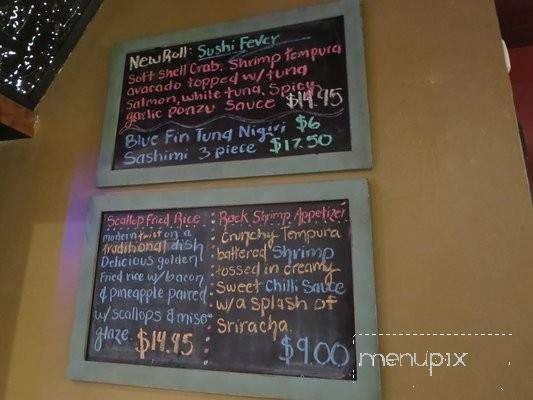 New Roll: Sushi Fever
Soft Shell Crab, Shrimp tempura
avocado topped w/ tuna
salmon, white tuna, Spicy
garlic ponzu sauce $14.95
Blue Fin Tuna Nigiri $6
Sashimi 3 piece $17.50
Scallop Fried Rice
modern twist on a
traditional dish
Delicious golden
Fried rice w/ bacon
& pineapple paired
w/ scallops & miso
glaze. $14.95
Rock Shrimp Appetizer
Crunchy Tempura
battered Shrimp
tossed in creamy
Sweet Chilli Sauce
w/ a splash of
Sriracha.
$9.00
menupix